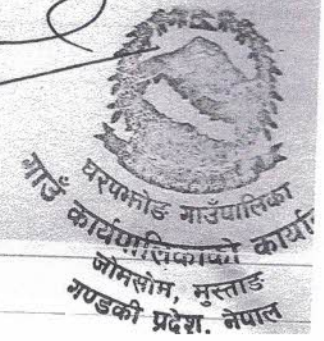 घरपझोङ गाउँपालिका
गाउँ कार्यपालिकाको कार्या
जोमसोम, मुस्ताङ
गण्डकी प्रदेश, नेपाल